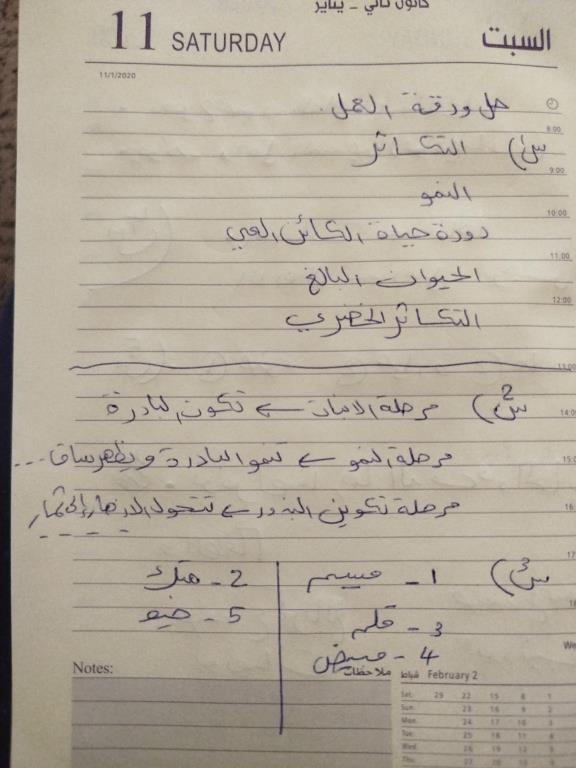 كانون ثاني - يناير
11 SATURDAY السبت
11/1/2020
حل ورقة العمل.
8:00
س1) التكاثر
9:00
النمو
10:00
دورة حياة الكائن الحي
11:00
الحيوان البالغ
12:00
التكاثر الخضري
13:00
س2) مرحلة الانبات ← تكون البادرة
14:0
مرحلة النمو ← تنمو البادرة و تظهر ساق ...
15:0
مرحلة تكوين البذور ← تتحول الازهار إلى ثمار
16
17
س3) 1- ميسم 2- متك
3- قلم 5- خيط
4- مبيض
Notes: ملاحظات
February 2 شباط
Sat. 29 22 15 8 1
Sun. 23 16 9 2
Mon. 24 17 10 3
Tue. 25 18 11 4
Wed. 26 19 12 5
Thu. 27 20 13 6
We